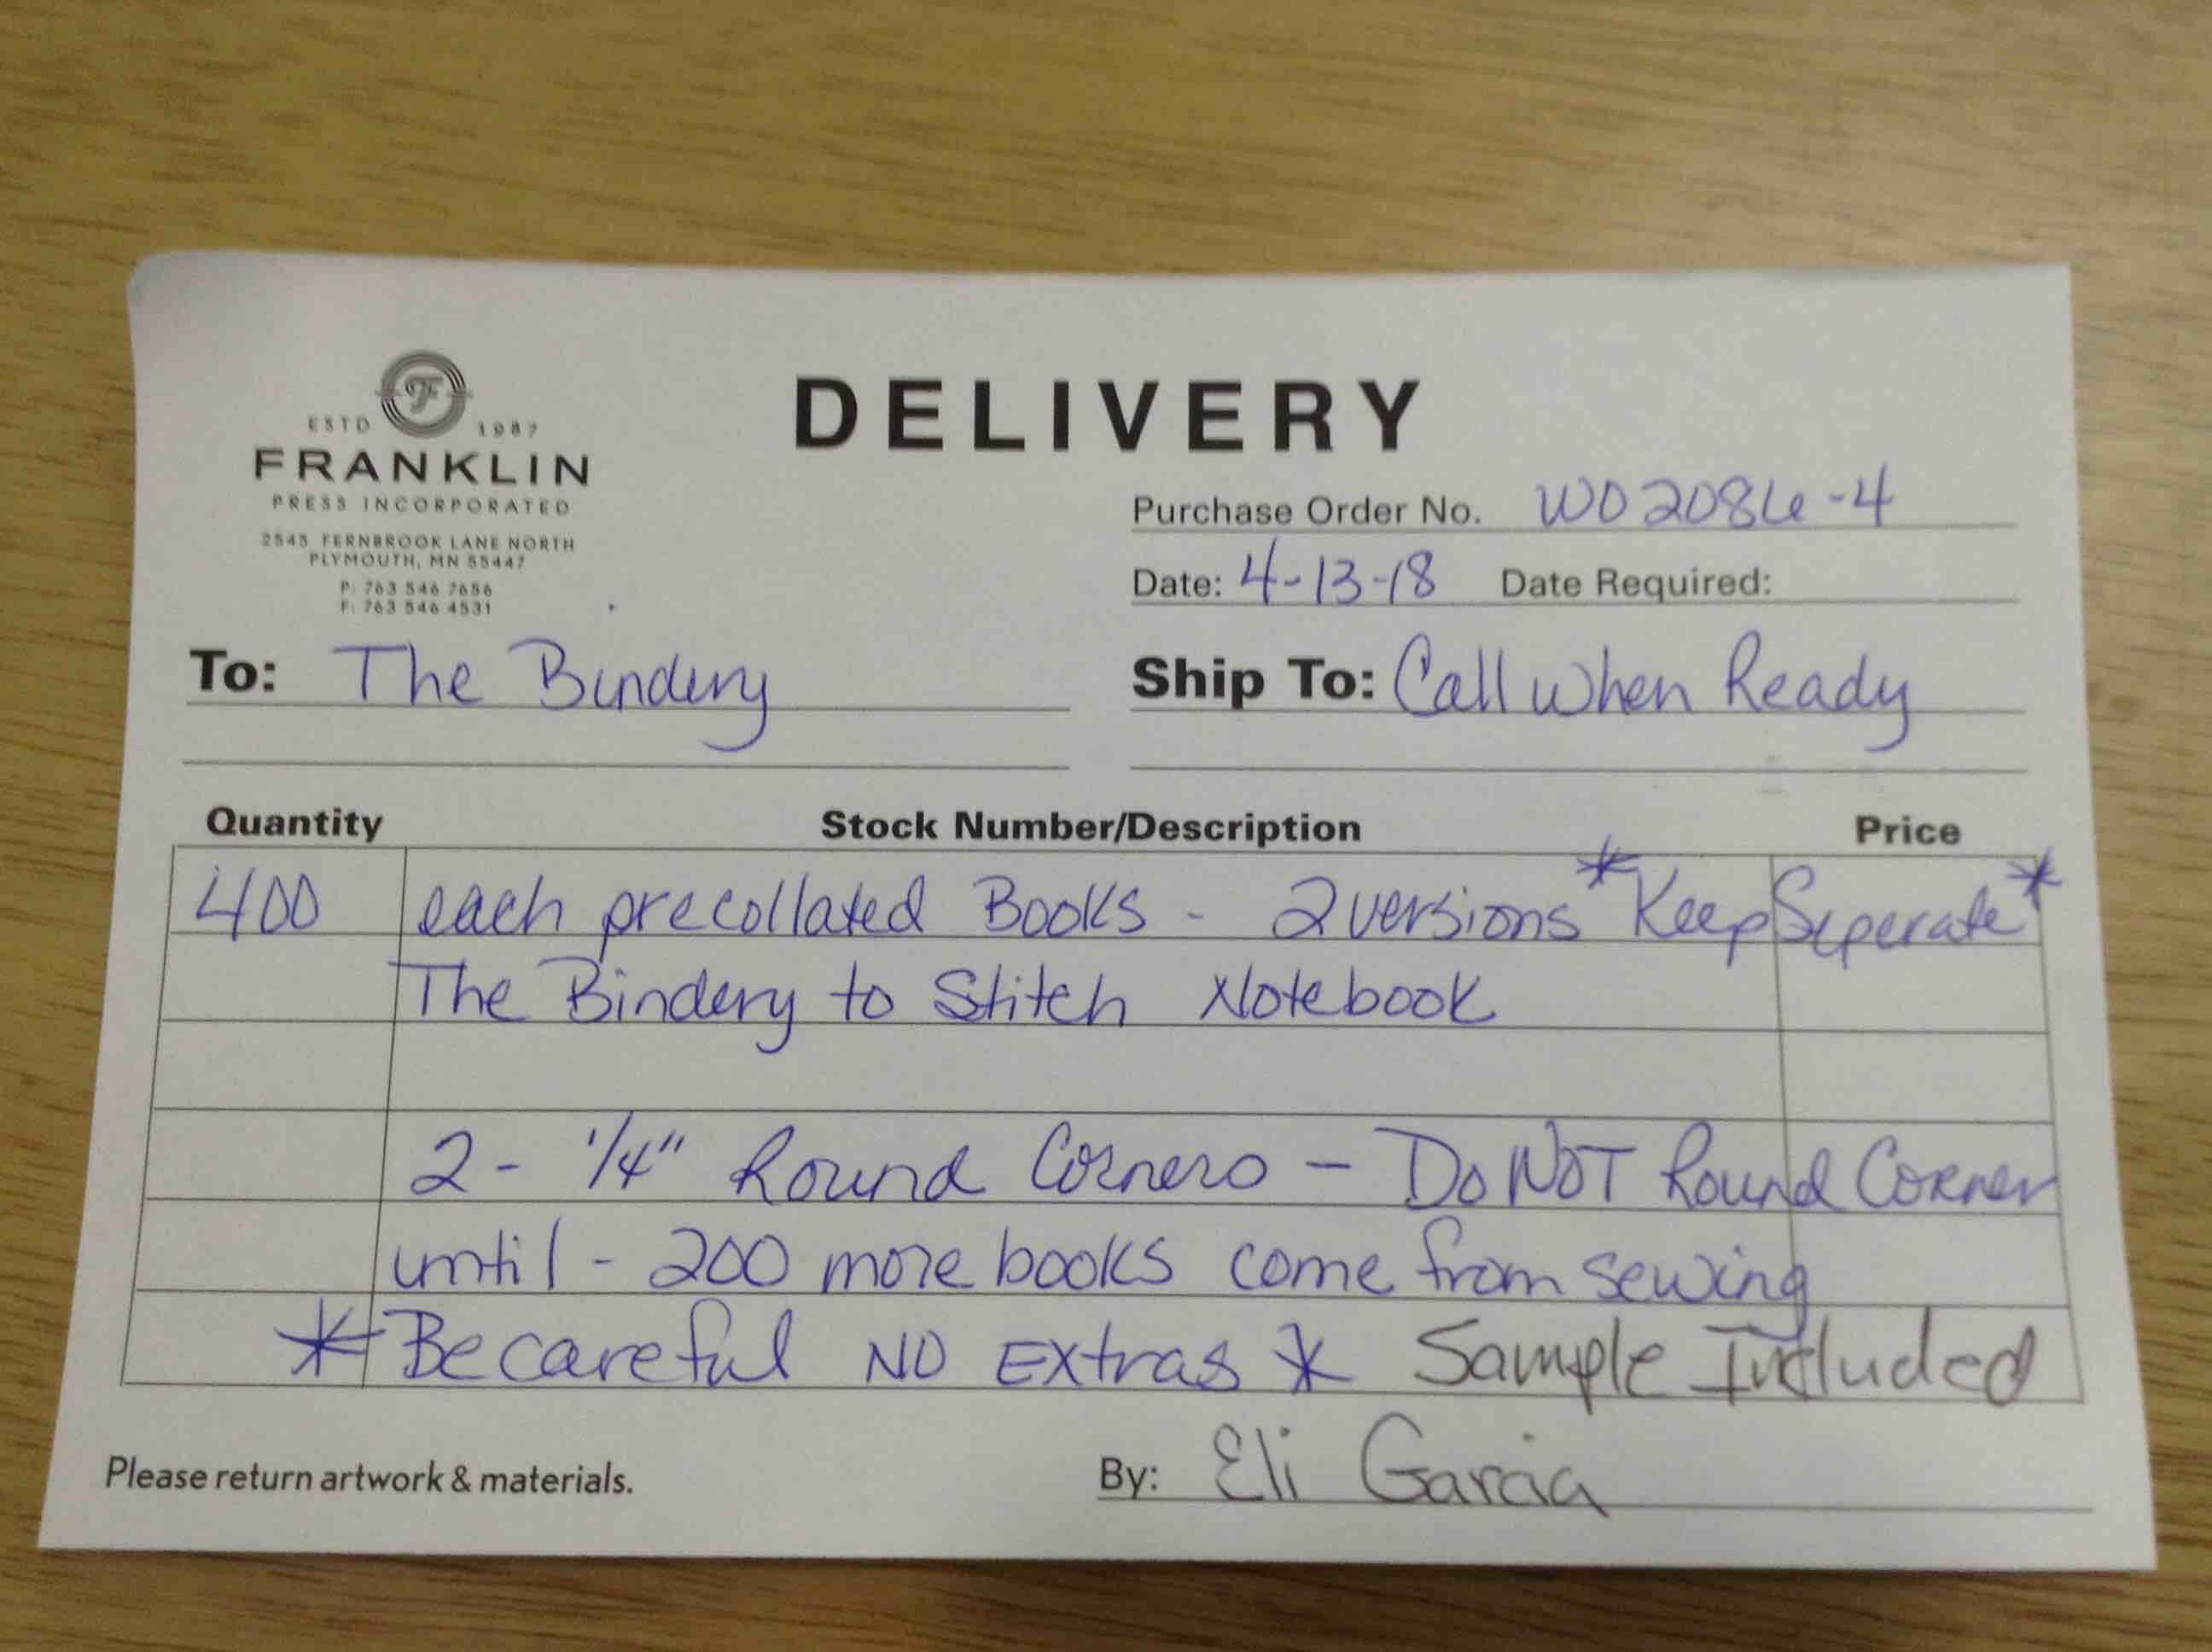 ESTD 1987
FRANKLIN
PRESS INCORPORATED
2545 FERNBROOK LANE NORTH
PLYMOUTH, MN 55447
P: 763 546 7656
F: 763 546 4531
DELIVERY
Purchase Order No. WO 2086-4
Date: 4-13-18 Date Required:
To: The Bindery
Ship To: Call When Ready
Quantity Stock Number/Description Price
400 each precollated Books - 2 versions *Keep Seperate*
The Bindery to Stitch Notebook
2 - 1/4" Round Corners - Do NOT Round Corner
until - 200 more books come from sewing
* Be careful NO Extras * Sample Included
Please return artwork & materials.
By: Eli Garcia